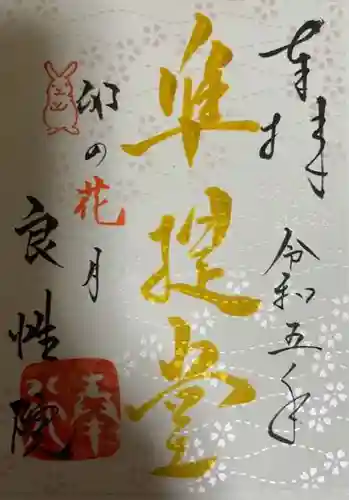 奉拝
令和五年
準提堂
卯の花月
良性院